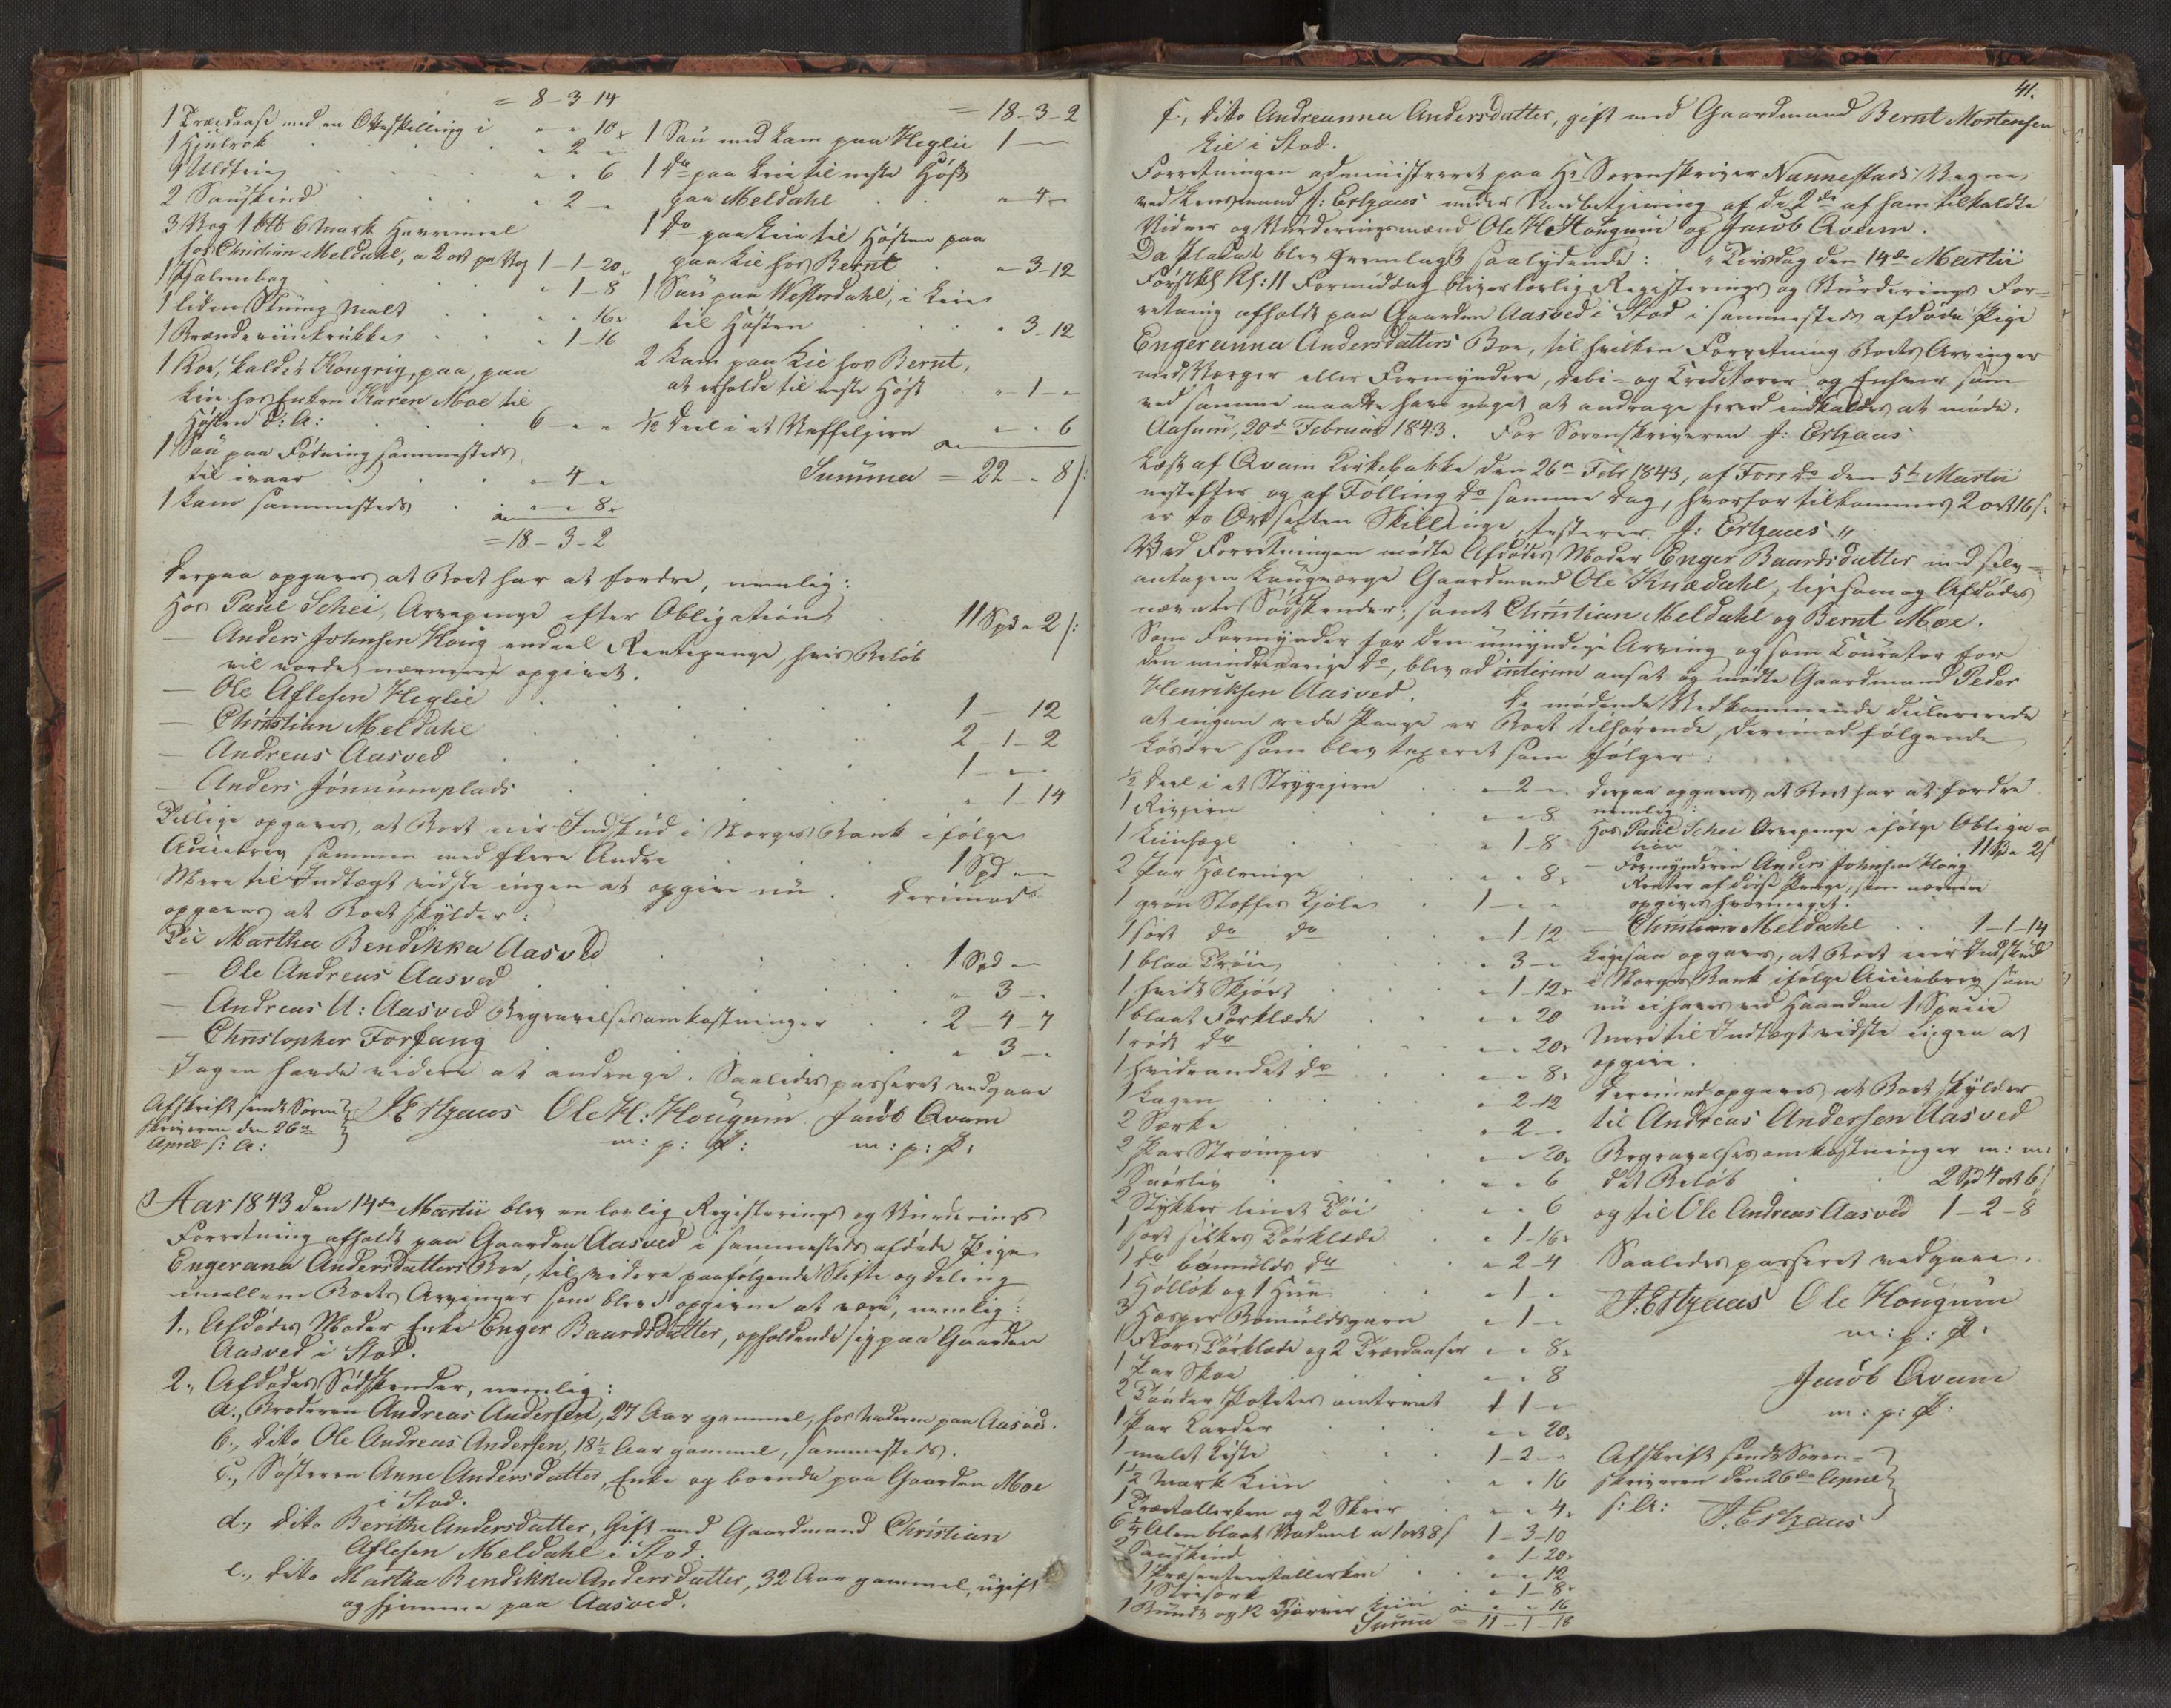 = 8-3-14
1 Trædaase med en Otteskilling i " " 10
1 Hjulrok " 2 "
9 Uldfeier " " 6
2 Sauskind " 2 "
3 Vog 1 Bld 6 Mark Havremeel
hos Christian Meldahl, a 2 ort pr Vog 1-1-20
1 Psalmebog " 1-8
1 liden Skump Malt " " 16
1 Brændeviinskrukke " 1-16
1 Koe, kaldet Kongrig, paa, paa
Leie hos Enken Karen Moe til
Høsten d: A: 6 " "
1 Sau paa Fødning sammesteds
til ivaar " 4 "
1 Lam sammesteds " " 8
= 18-3-2
= 18-3-2
1 Sau med Lam paa Heglie 1 "
1 do paa Leie til neste Høst
paa Meldahl " 4 "
1 do paa Leie til Høsten paa
paa Lie hos Bernt " 3-12
1 Sau paa Westerdahl, i Leie
til Høsten " 3-12
2 Lam paa Lie hos Bernt,
at erholde til neste Høst " 1 "
1/2 Deel i et Vaffeljern " " 6
Summa = 22 " 8 s:
Derpaa opgaves at Boet har at fordre, nemlig:
Hos Paul Schei, Arvepenge efter Obligation 11 Spd " 2 s:
— Anders Johnsen Haug endeel Rentepenge, hvis Beløb
vil vorde nærmere opgivet.
— Ole Aflesen Heglie 1 — 12
— Christian Meldahl 2-1-2
— Andreas Aasved 1 — "
— Anders Jønnumplads " 1-14
Tillige opgaves, at Boet eier Indskud i Norges Bank ifølge
Actiebrev sammen med flere Andre 1 Spd "
Mere til Indtægt vidste ingen at opgive nu. Derimod
opgaves at Boet skylder:
Til Martha Bendikka Aasved 1 Spd "
— Ole Andreas Aasved " 3 "
— Andreas A: Aasved Begravelsesomkostninger 2-4-7
— Christopher Forfang " 3 "
Ingen havde videre at andrage. Saaledes passeret vedgaae
Afskrift sendt Soren-
skriveren den 26de
April s: A:
J. Ertzaas Ole H: Hougum Jacob Qvam
m: p: P: m: p: P:
Aar 1843 den 14de Martii blev en lovlig Registerings og Vurderings
Forretning afholdt paa Gaarden Aasved i sammesteds afdøde Pige
Engerana Andersdatters Boe, til videre paafølgende Skifte og Deling
imellem Boets Arvinger som bleve opgivne at være, nemlig:
1., Afdødes Moder Enke Enger Baardsdatter, opholdende sig paa Gaarden
Aasved i Stod.
2., Afdødes Sødskender, nemlig:
a., Broderen Andreas Andersen, 27 Aar gammel, hos Moderen paa Aasved.
b., dito Ole Andreas Andersen, 18 1/2 Aar gammel, sammesteds.
c., Søsteren Anne Andersdatter, Enke og boende paa Gaarden Moe
i Stod.
d., dito Berithe Andersdatter, Gift med Gaardmand Christian
Aflesen Meldahl i Stod.
e., dito Martha Bendikka Andersdatter, 32 Aar gammel, ugift
og hjemme paa Aasved.
41.
f., dito Andreanna Andersdatter, gift med Gaardmand Bernt Mortensen
Lie i Stod.
Forretningen administreret paa Hr Sorenskriver Nannestads Vegne
ved Lensmand J: Ertzaas under Medbetjening af de 2de af ham tilkaldte
Vidner og Vurderingsmænd Ole H Hougum og Jacob Qvam.
Da Placat blev fremlagt saalydende: "Tirsdag den 14de Martii
Førstk. Kl: 11 Formiddag bliver lovlig Registerings og Vurderings For-
retning afholdt paa Gaarden Aasved i Stod i sammesteds afdøde Pige
Engeranna Andersdatters Boe, til hvilken Forretning Boets Arvinger
med Værger eller Formyndere, Debi- og Creditorer og Enhver som
ved samme maatte have noget at andrage herved indkaldes at møde.
Aasum, 20de Februar 1843. For Sorenskriveren J: Ertzaas
Læst af Qvam Kirkebakke den 26de Febr 1843, af Forr do den 5te Martii
nestefter og af Følling do samme Dag, hvorfor tilkommer 2 ort 16 s:
er to Ort sexten Skillinge, testerer J: Ertzaas"
Ved Forretningen mødte Afdødes Moder Enger Baardsdatter med selv-
antagen Laugværge Gaardmand Ole Knædahl, ligesom og Afdødes
nævnte Sødskender, samt Christian Meldahl og Bernt Moe.
Som Formynder for den umyndige Arving og som Courator for
den mindreaarige do, blev ad interim ansat og mødte Gaardmand Peder
Henriksen Aasved. De mødende Vedkommende declarerede
at ingen rede Penge er Boet tilhørende, derimod følgende
Løsøre som blev taxeret som følger:
1/2 Deel i et Strygejern " 2 "
1 Rivjern " " 8
1 Liinhegl " 1-8
2 Par Hælringe " " 8
1 grøn Stoffes Kjole 1 " "
1 sort do do " 1-12
1 blaa Trøie " 3 "
1 hvidt Skjørt " 1-12
1 blaat Forklæde " " 20
1 rødt do " " 20
1 hvidrandet do " " 8
1 Lagen " 2-12
2 Særke " 2 "
2 Par Strømper " " 20
1 Snørliv " " 6
2 Stykker linet Tøi " " 6
1 sort silkes Tørklæde " 1-16
1 do bomulds do " 2-4
1 Hølløk og 1 Hue " 1 "
3 Hesper Bomuldsgarn " 1 "
1 Flors Tørklæde og 2 Trædaaser " " 8
1 Par Skoe " " 8
2 Tønder Poteter omtrent 1 1 "
1 Par Karder " " 20
1 malet Kiste 1-2 "
1 1/2 Mark Liin " " 16
1 Trætallerken og 2 Skeer " " 4
6 1/4 Alen blaat Vadmel a 1 ort 8 s 1-3-10
2 Sauskind " 1-20
1 Præsenteertallerken " " 12
1 Striesæk " 1-8
1 Bundt og 12 Tjærver Liin " " 16
Summa = 11-1-18
Derpaa opgaves, at Boet har at fordre
nemlig:
Hos Paul Schei Arvepenge ifølge Obliga-
tion 11 Sp " 2 s
— Formynderen Anders Johnsen Haug
Renter af disse Penge, som nærmere
opgives hvormeget.
— Christian Meldahl 1-1-14
Ligesaa opgaves, at Boet eier Indskud
i Norges Bank ifølge Actiebrev som
nu ei haves ved Haanden 1 Specie
Mere til Indtægt vidste ingen at
opgive.
Derimod opgaves at Boet skylder
til Andreas Andersen Aasved
Begravelsesomkostninger m: m:
det Beløb 2 Sp 4 ort 6 s
og til Ole Andreas Aasved 1-2-8
Saaledes passeret vedgaae.
J. Ertzaas Ole Hougum
m: p: P:
Jacob Qvam
m: p: P:
Afskrift sendt Soren-
skriveren den 26de April
s: A: J. Ertzaas